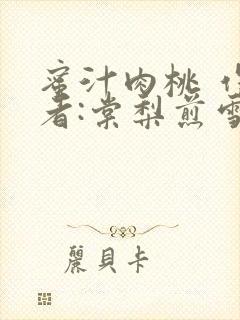 蜜汁肉桃 作
者:棠梨煎雪
麗貝卡